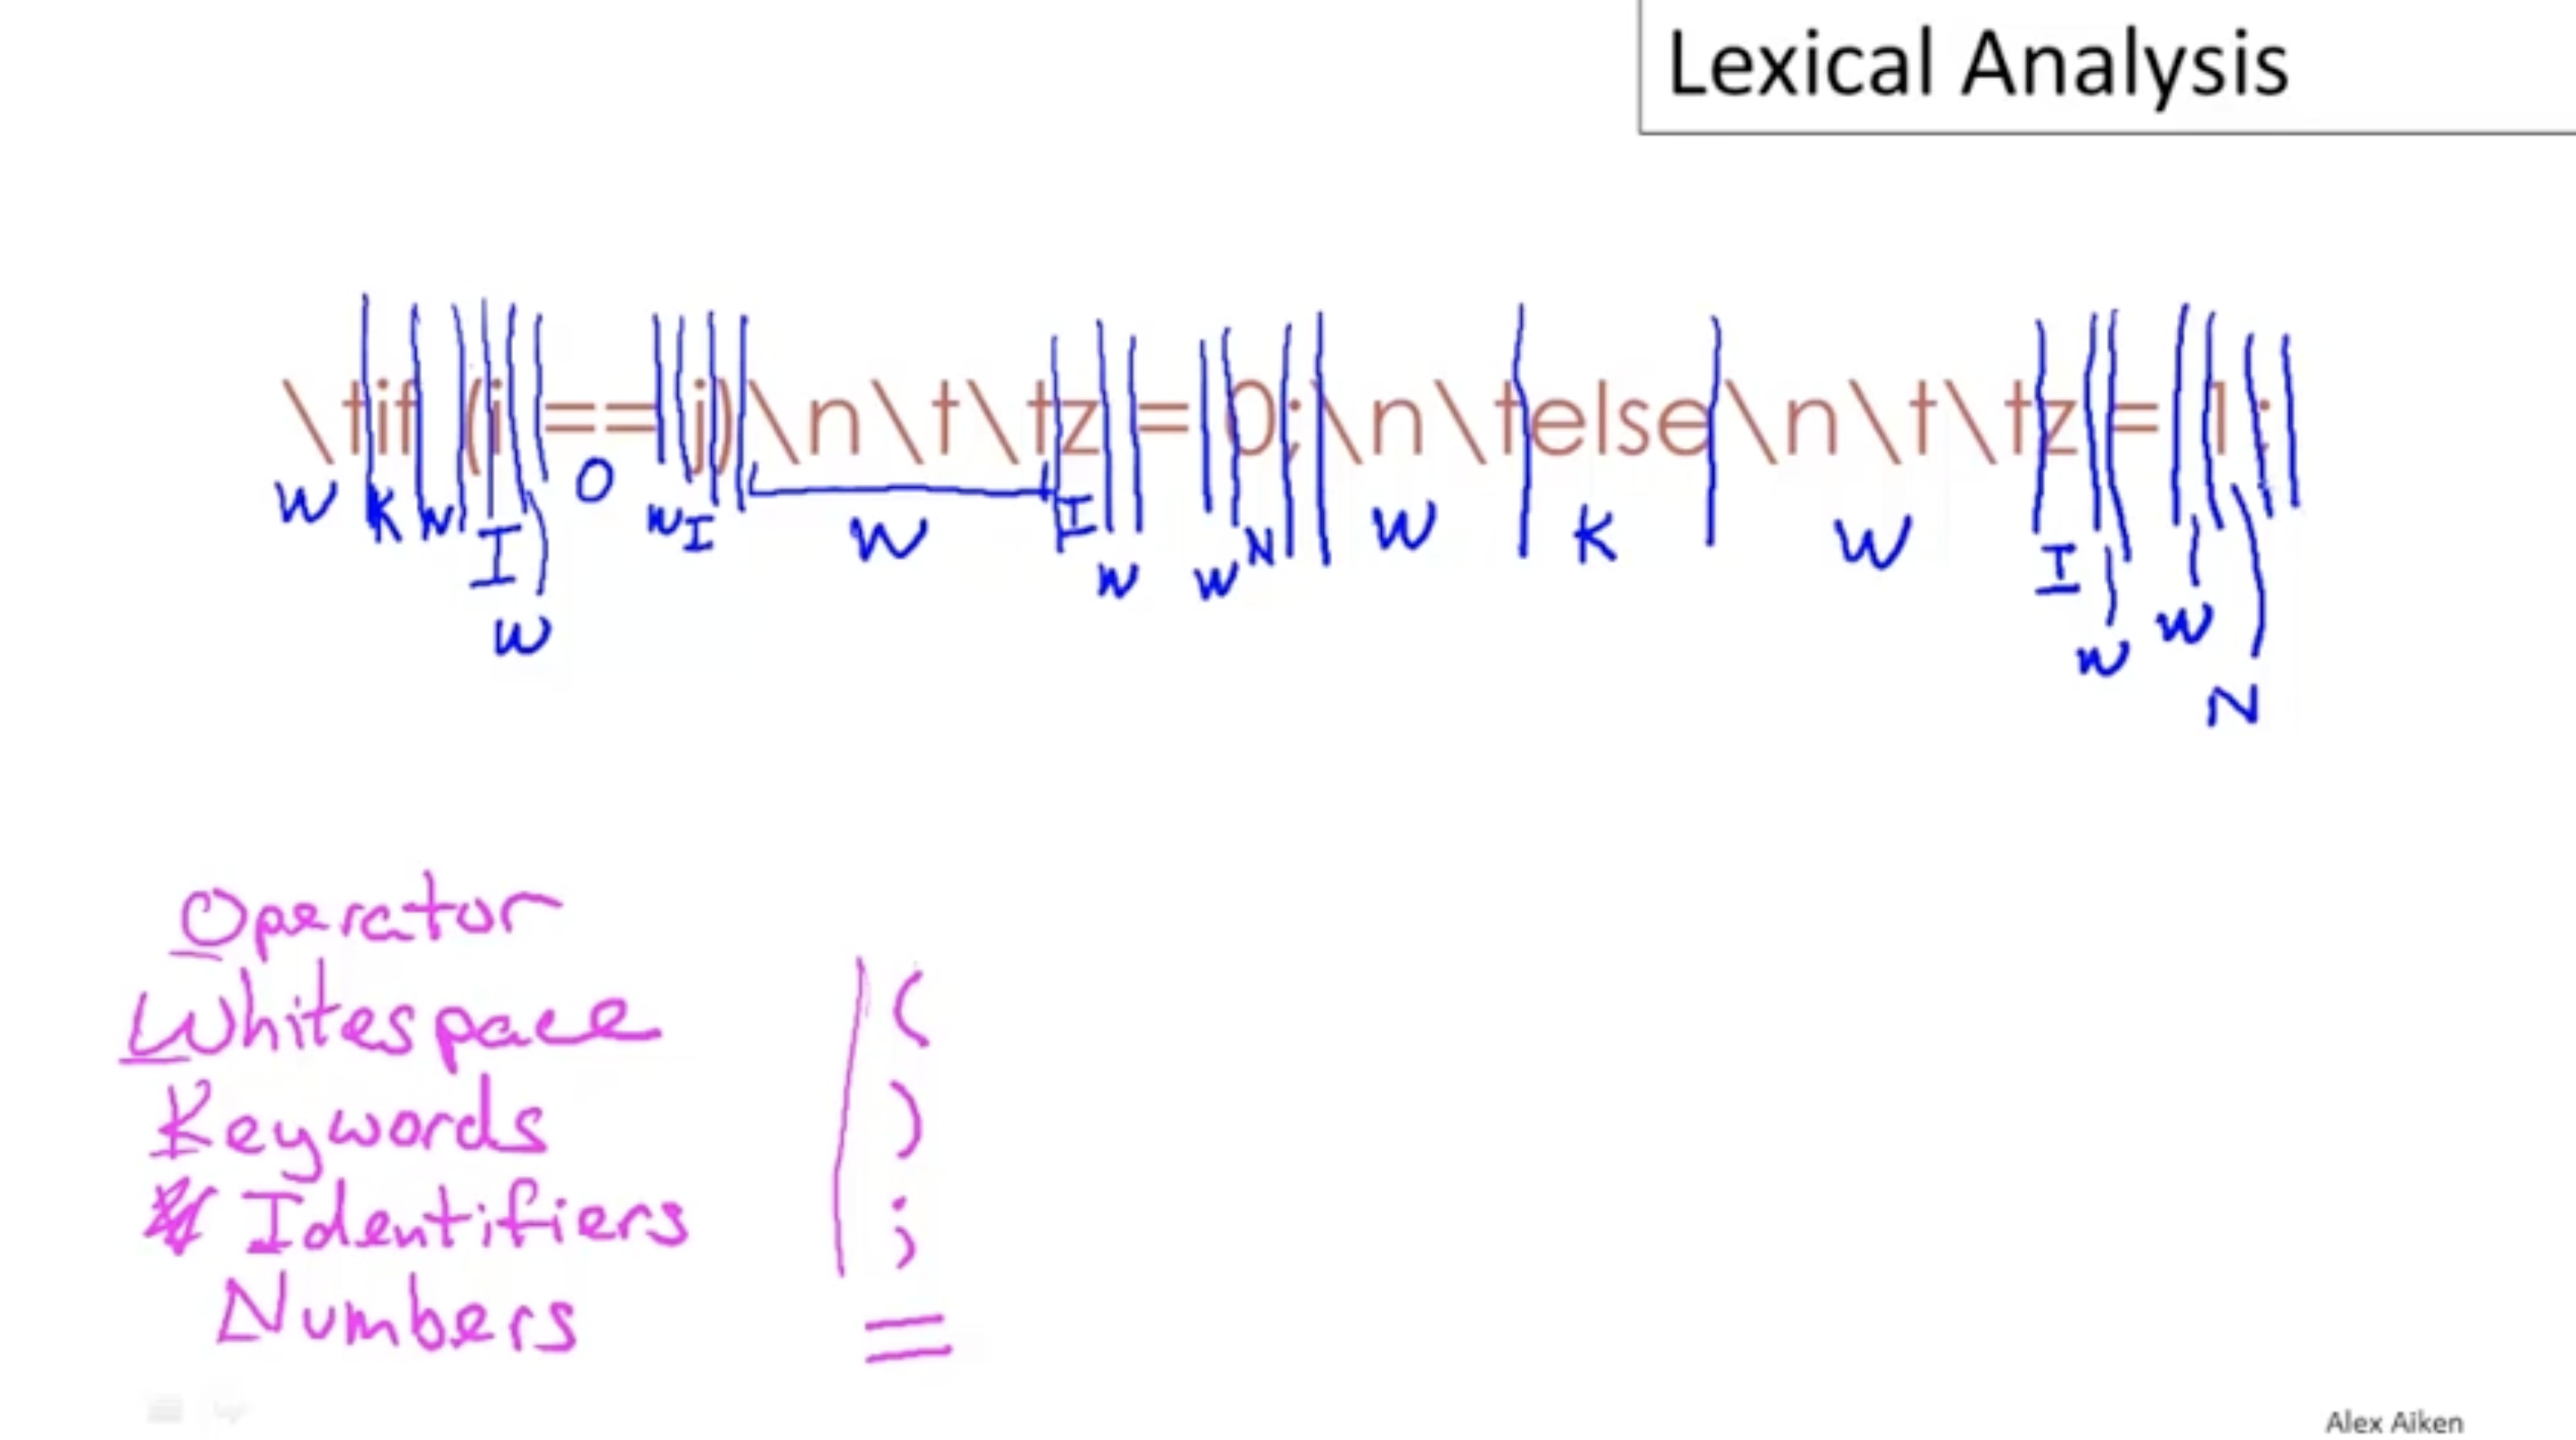 Lexical Analysis
\tif (i == j)\n\t\tz = 0;\n\telse\n\t\tz = 1;
W K W I O W I W I W W N W K W I W W N
W
Operator
Whitespace (
Keywords )
Identifiers ;
Numbers =
Alex Aiken